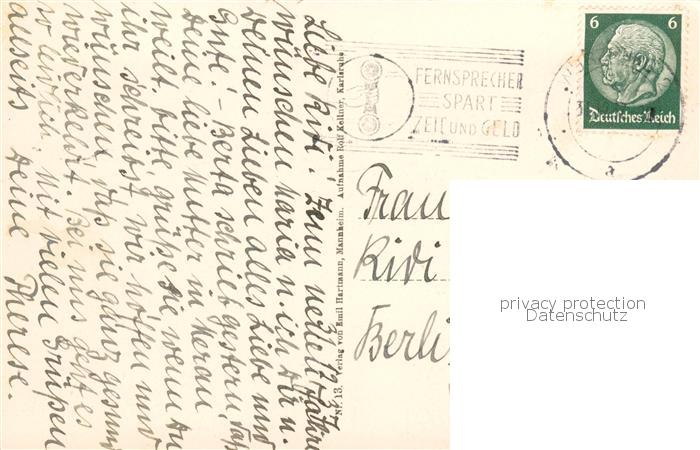 Liebe Kidi! Zum neuen Jahre
wünschen Maria u. ich Dir u.
Deinen Lieben alles Liebe und
Gute! - Berta schrieb gestern, daß
Deine liebe Mutter in Meran
weilt. Bitte grüße sie wenn Du
ihr schreibst, wir hoffen und
wünschen, daß sie ganz gesund
wiederkehrt. Bei uns geht es
so leidlich. Mit vielen Grüßen
allseits Deine Therese.
Nr. 13. Verlag von Emil Hartmann, Mannheim. Aufnahme Rolf Kellner, Karlsruhe
FERNSPRECHER
SPART
ZEIT UND GELD
6 6
Deutsches Reich
a
Frau
Berli
privacy protection
Datenschutz